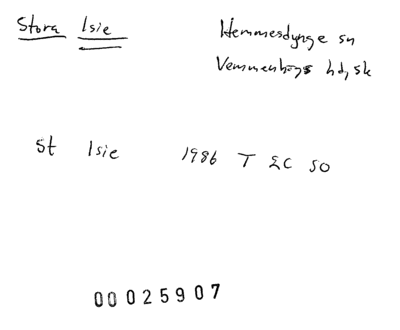 Stora Isie
Hemmesdynge sn
Vemmenhögs hd, sk
St Isie 1986 T EC SO
00025907